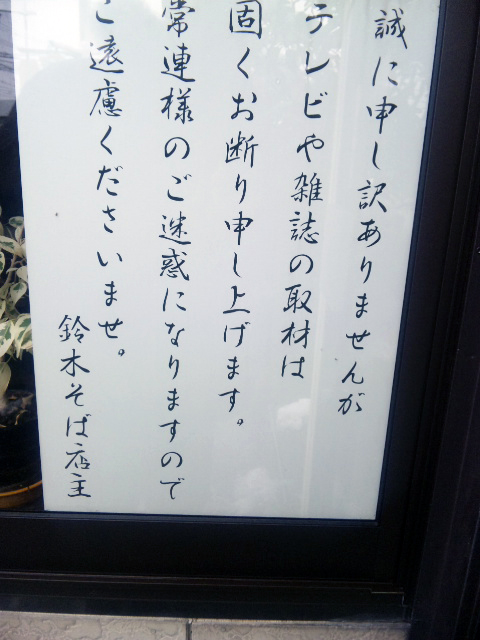 誠に申し訳ありませんが
テレビや雑誌の取材は
固くお断り申し上げます。
常連様のご迷惑になりますので
ご遠慮くださいませ。
鈴木そば店主